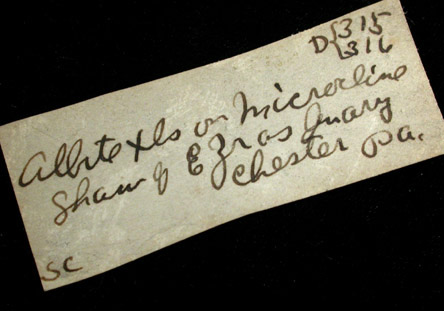 D { 315
316
Albite xls on Microcline
Shaw & Ezras Quarry
Chester Pa.
SC